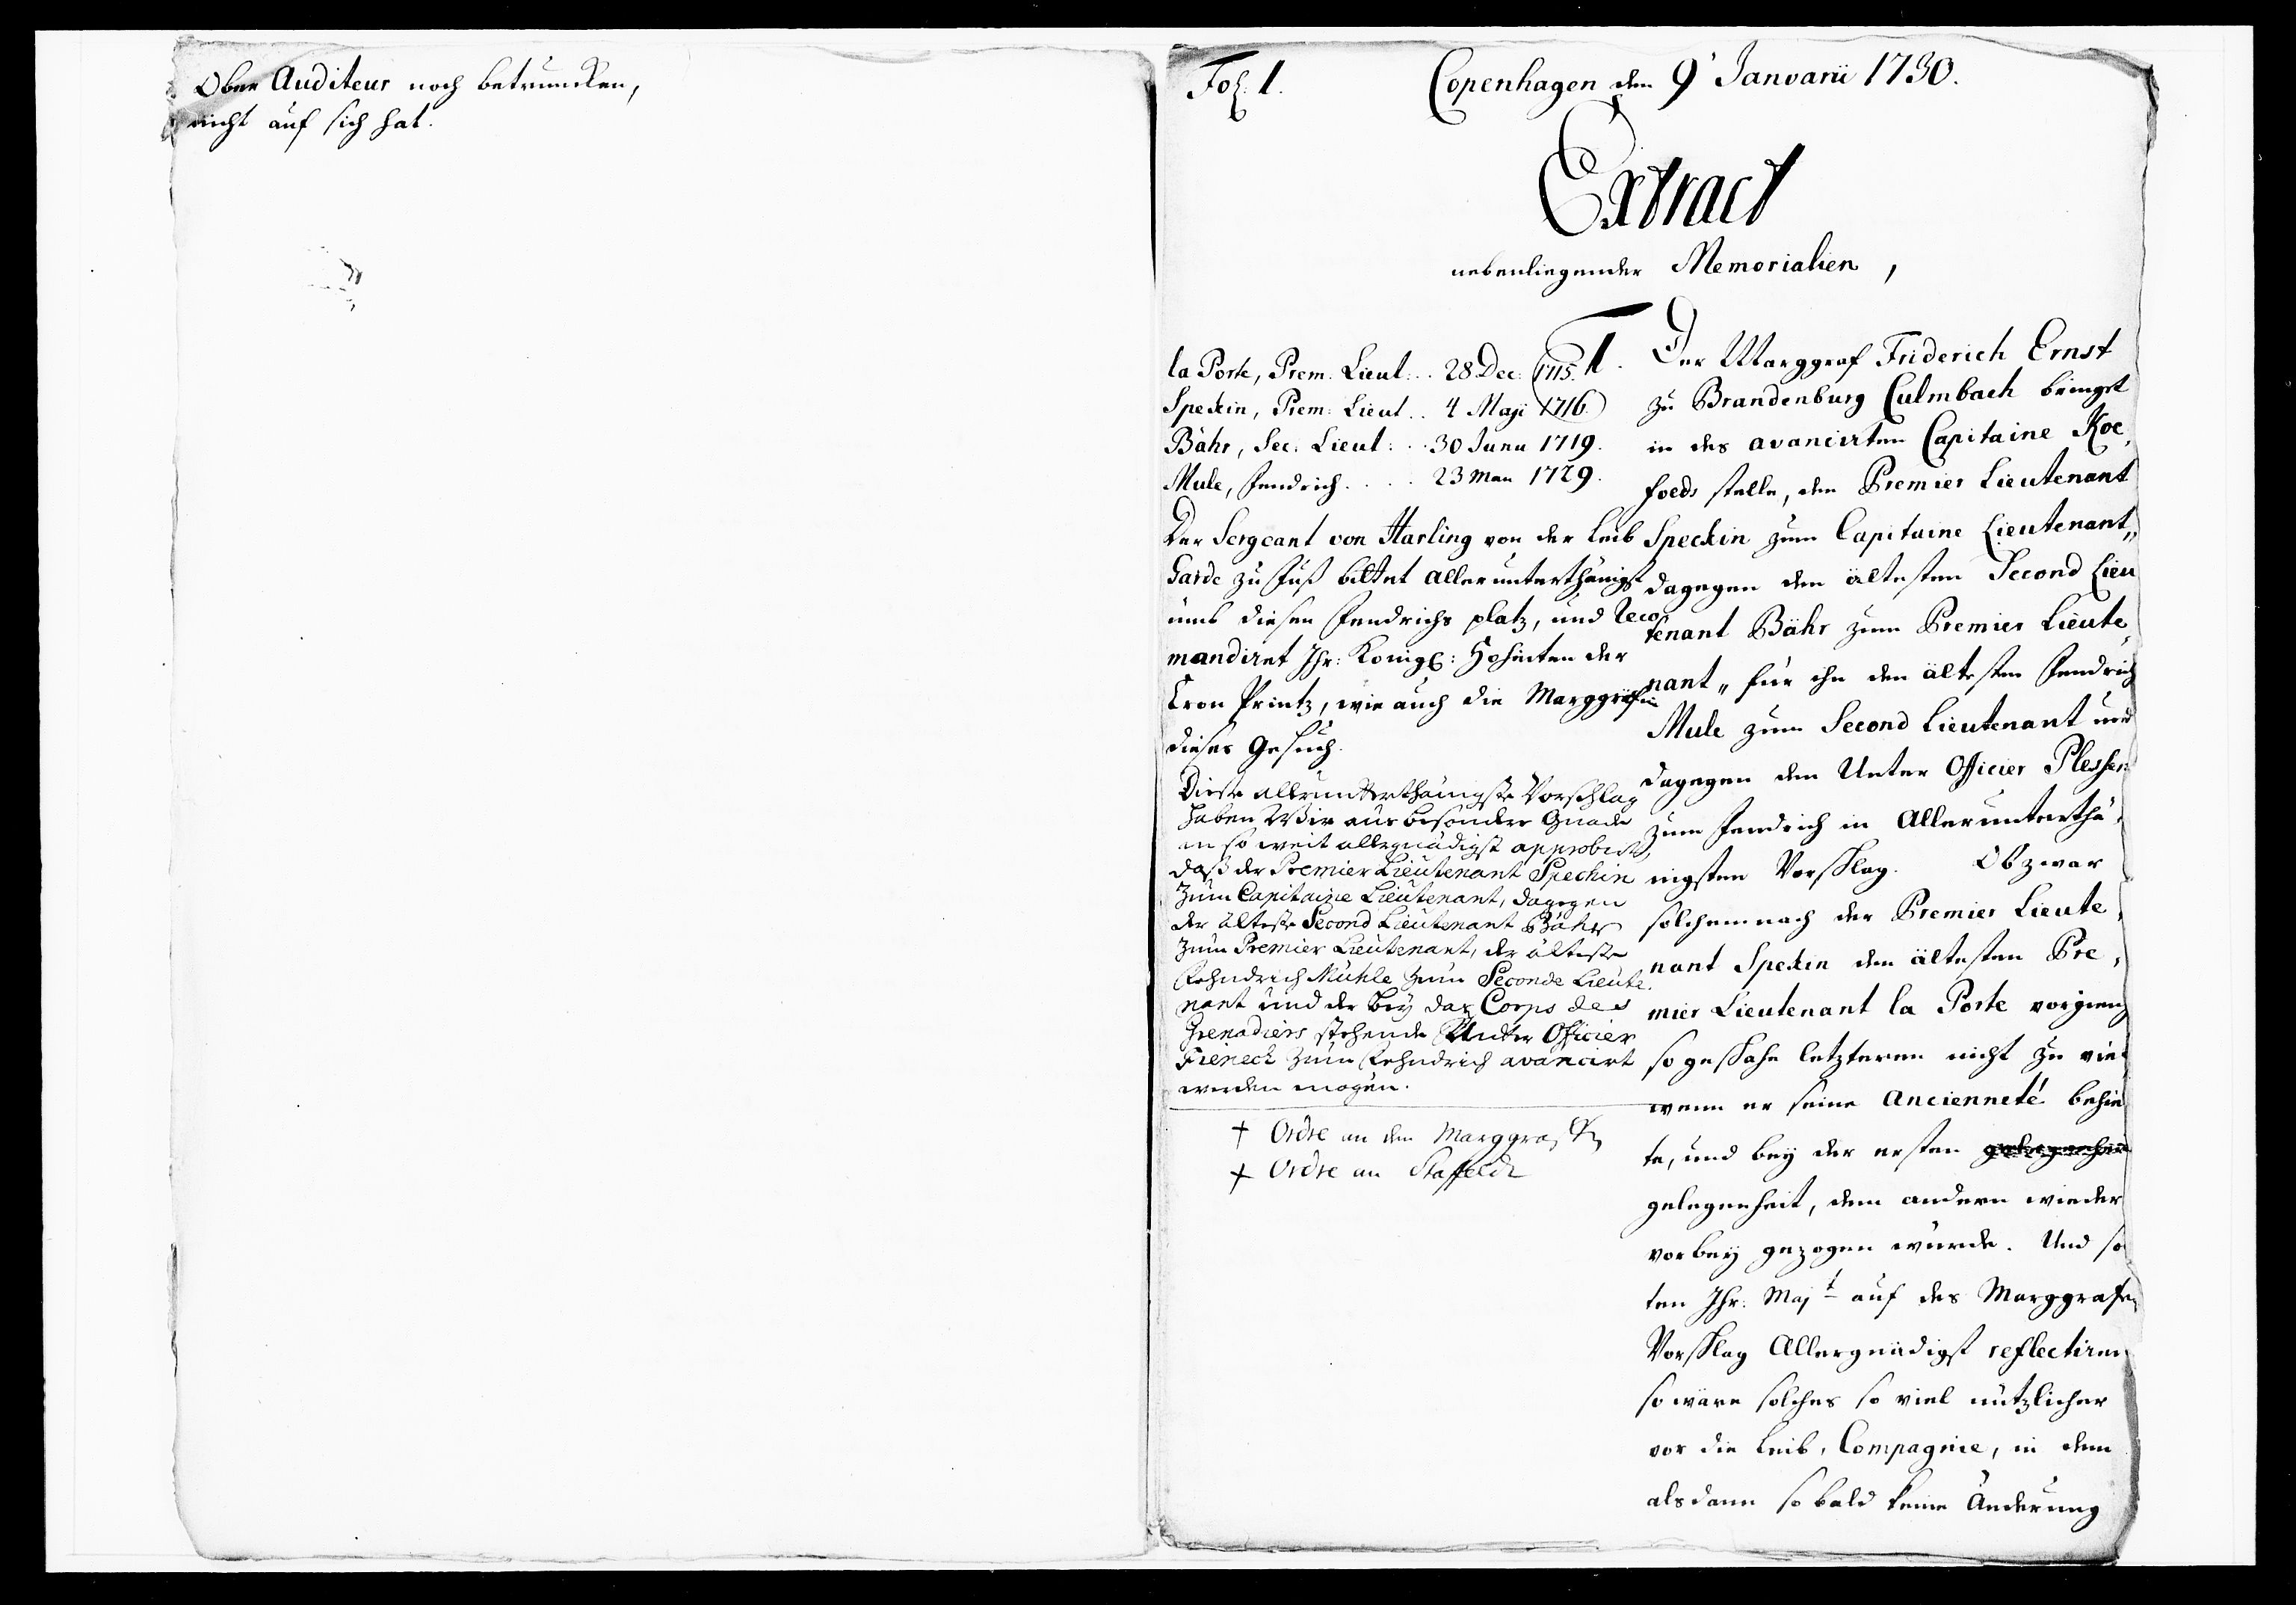 Ober Auditeur noch betruncken,
nicht auf sich hat.
Fol. 1.
Copenhagen den 9' Janvarii 1730.
Extract
nebenliegender Memorialien,
la Porte, Prem. Lieut: .. 28 Dec: 1715.
Speckin, Prem: Lieut .. 4 Maji 1716.
Bähr, Sec. Lieut: .. 30 Junii 1719.
Mule, Fendrich .... 23 Man 1729.
Der Sergeant von Harling von der Leib
Garde zu Fuß bittet allerunterthänigst
umb diesen Fendrichs platz, und reco
mandiret Ihr: Königl: Hoheiten der
Cron Printz, wie auch die Marggräfin
dieses Gesuch.
Diese allerunterthänigste Vorschlag
haben Wir aus besonder Gnade
in so weit allergnädigst approbirt,
daß der Premier Lieutenant Spechin
zum Capitaine Lieutenant, dagegen
der älteste Second Lieutenant Bähr
zum Premier Lieutenant, der älteste
Fehndrich Mühle zum Seconde Lieute
nant und der bey das Corps des
Grenadiers stehende Unter Officier
Fieneck zum Fehndrich avancirt
werden mögen.
† Ordre an den Marggrafen
† Ordre an Staffeldt
1. Der Marggraf Friderich Ernst
zu Brandenburg Culmbach bringet
in des avancirten Capitaine Koe,
foeds stelle, den Premier Lieutenant
Speckin zum Capitaine Lieutenant,,
dagegen den ältesten Second Lieu
tenant Bähr zum Premier Lieute,
nant,, für ihn den ältesten Fendrich
Mule zum Second Lieutenant und
dagegen den Unter Officier Plessen
zum Fendrich in Allerunterthä,
nigsten Vorschlag. Obzwar
solchemnach der Premier Lieute,
nant Speckin den ältesten Pre,
mier Lieutenant la Porte vorgieng
so geschahe letzteren nicht zu viel
wenn er seine Ancienneté behiel
te, und bey der ersten gelegenheit
gelegenheit, dem andern wieder
vorbey gezogen würde. Und so
ten Ihr: Majt auf des Marggrafen
Vorschlag Allergnädigst reflectiren
so wäre solches so viel nützlicher
vor die Leib, Compagnie, in dem
alsdann so bald keine Änderung